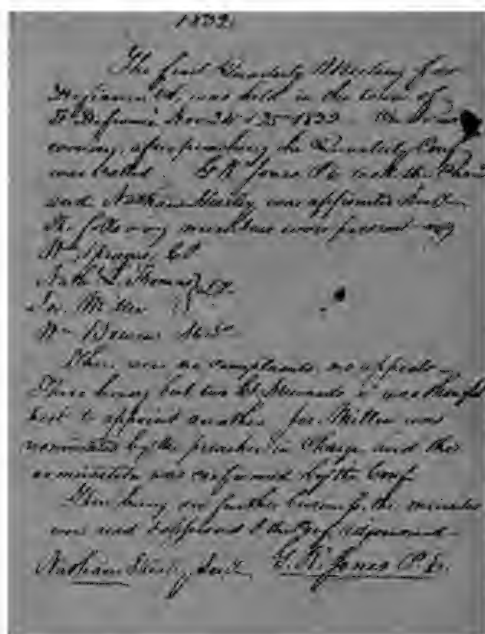 1832.
The first Quarterly Meeting for
Defiance Ct. was held in the town of
Ft Defiance Nov 24 & 25 1832. On
evening, after preaching the Quarterly Conf
was called. G R Jones P E took the Chair
and Nathan was appointed Sect.
The following members were present
Wm Sprague, C P
Nath. L. Thomas
Jos. Miller
Wm Bowen
There were no complaints no appeals
There being but two Ct Stewards it was thought
best to appoint another. Jos. Miller was
nominated by the preacher in charge and this
nomination was confirmed by the Conf
There being no further business, the minutes
were read & approved & the Conf. adjourned
Nathan Sect. G. R. Jones P. E.